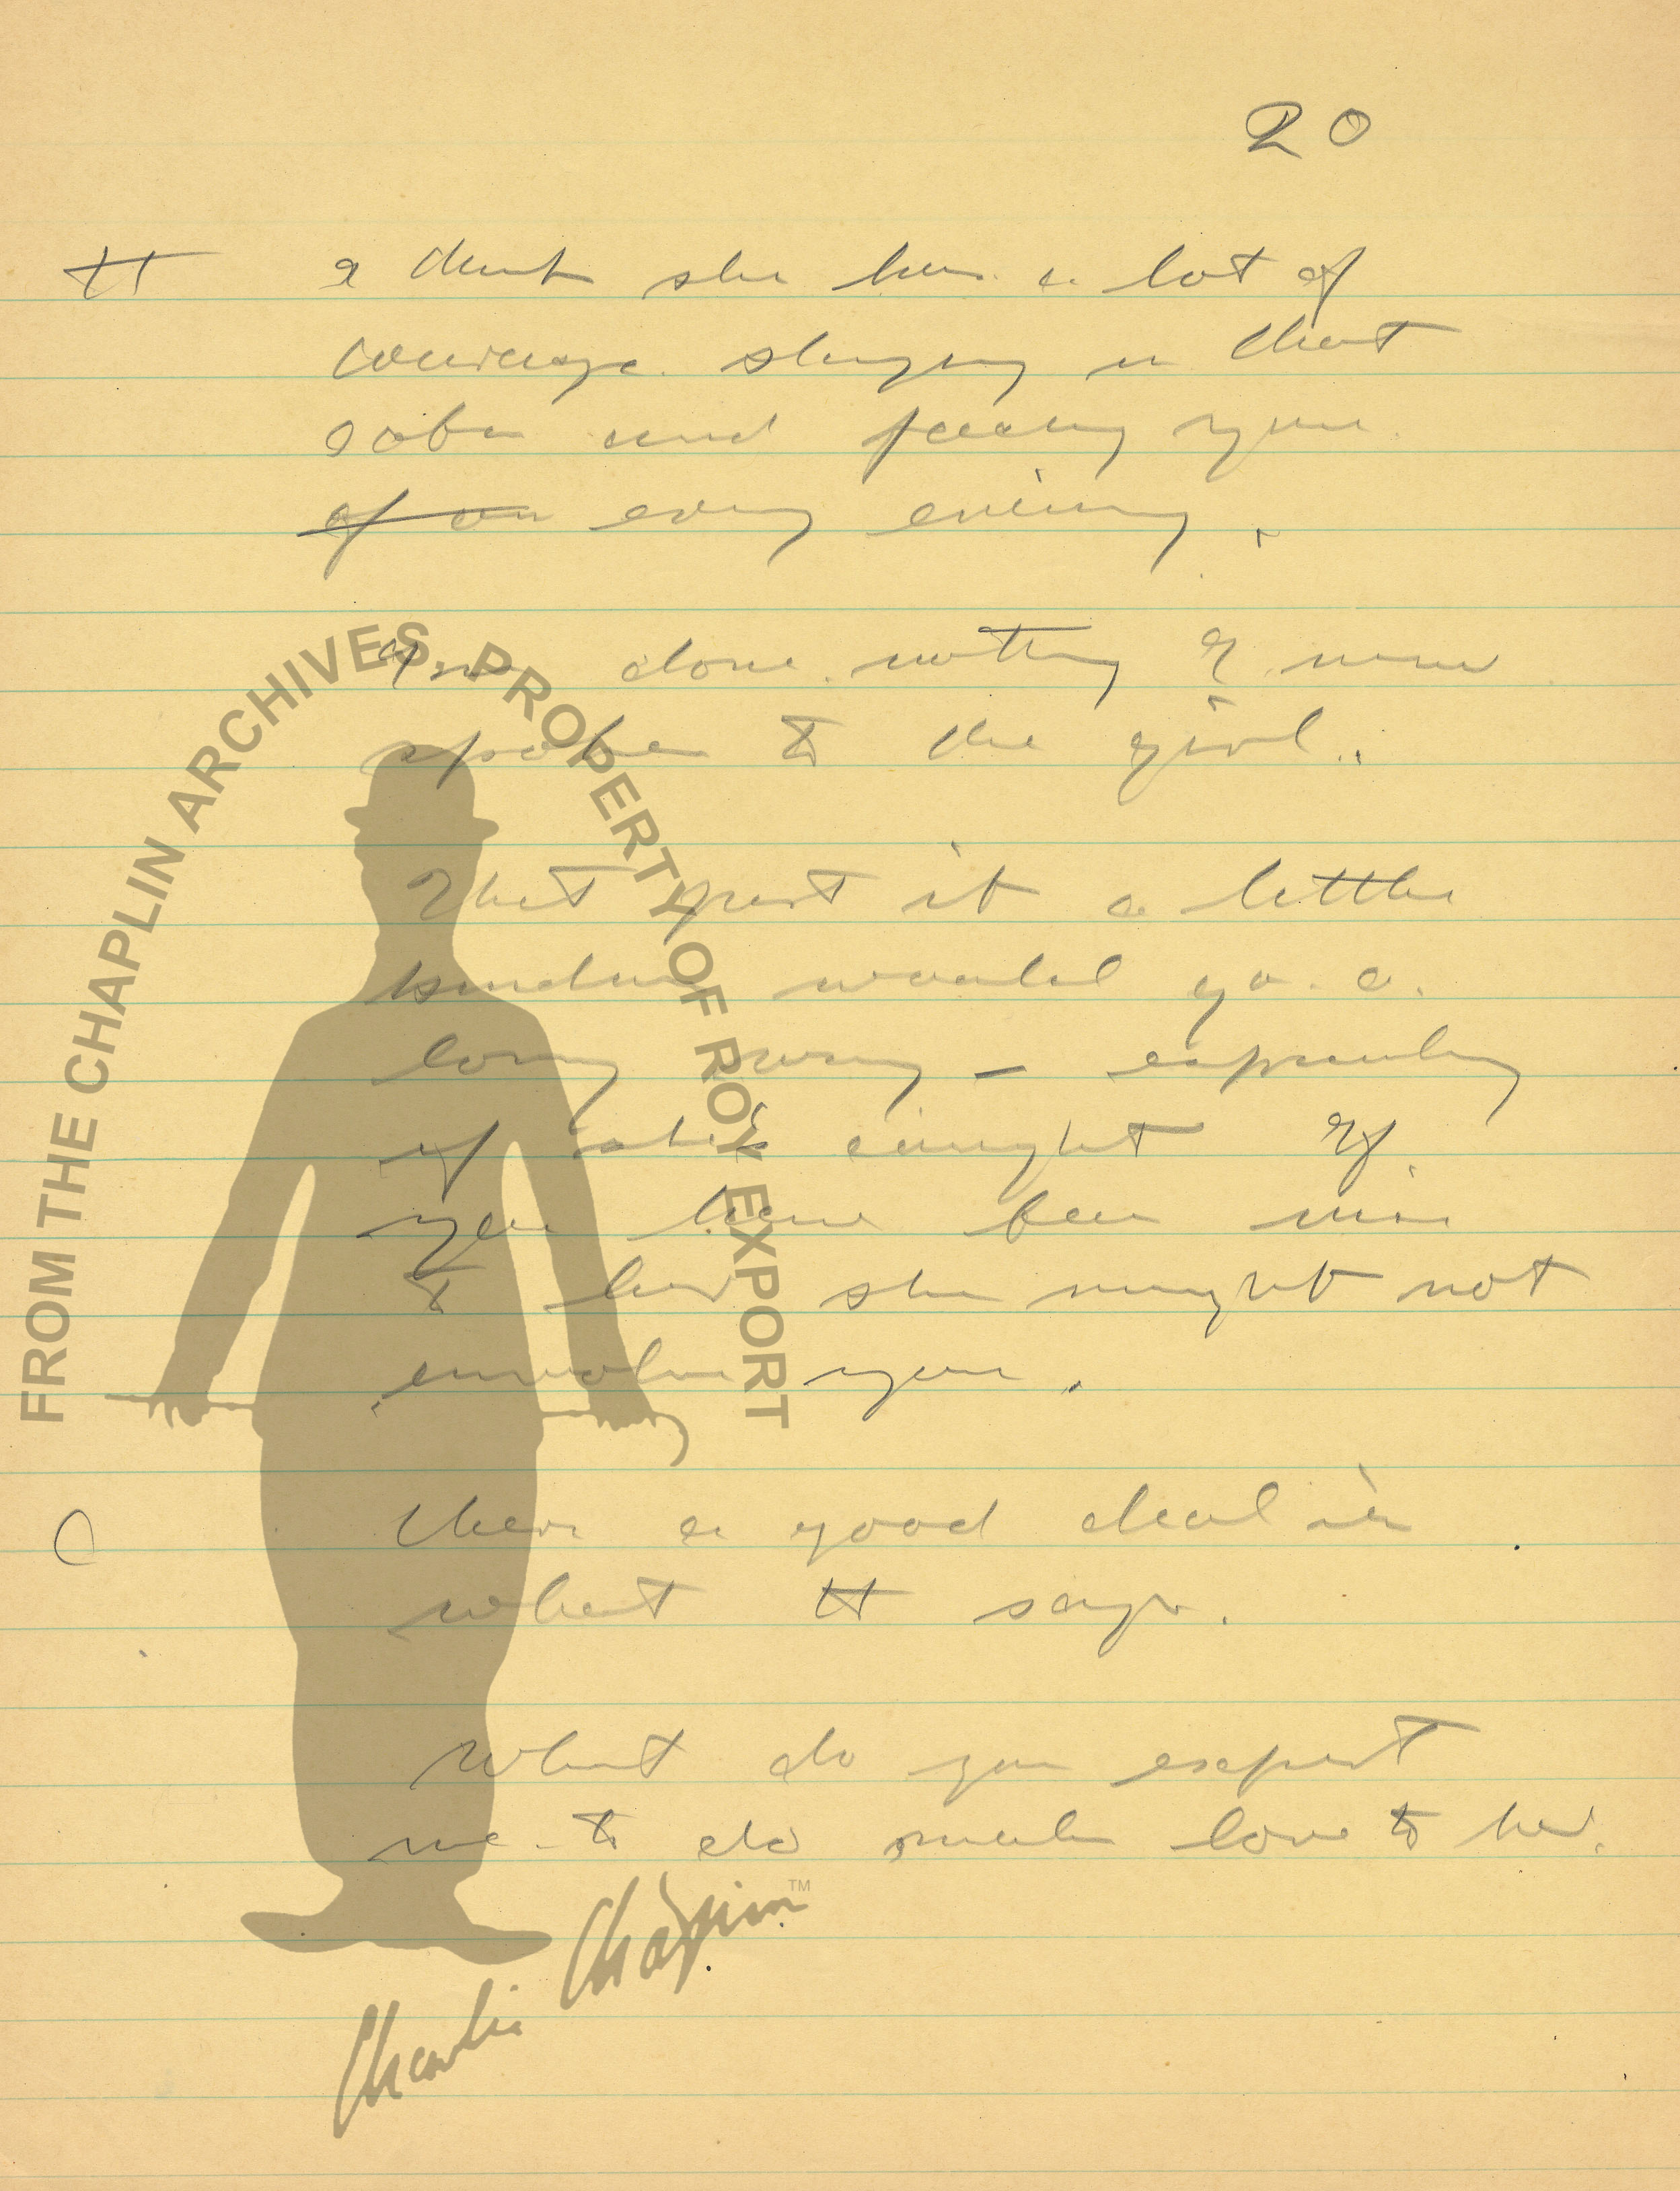 20
H I think she has a lot of
courage staying in that
and facing you
of on every evening.
I've done nothing I never
spoke to the girl.
That just it a little
kindness would go a
long way – especially
if caught If
you have been nice
to her she might not
envolve you.
C theres a good deal in
what H says.
What do you expect
me to do make love to her.
FROM THE CHAPLIN ARCHIVES, PROPERTY OF ROY EXPORT
Charlie Chaplin™